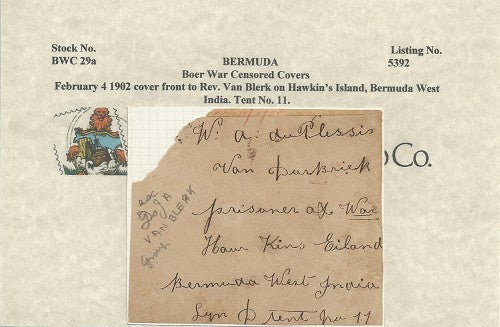 Stock No.
BWC 29a
BERMUDA
Listing No.
5392
Boer War Censored Covers
February 4 1902 cover front to Rev. Van Blerk on Hawkin's Island, Bermuda West
India. Tent No. 11.
Co.
W. A. du Plessis
Van
prisoner at War
Haur Kins Eiland
Bermuda West India
Lyn D tent no 11
ex
VAN BLERK